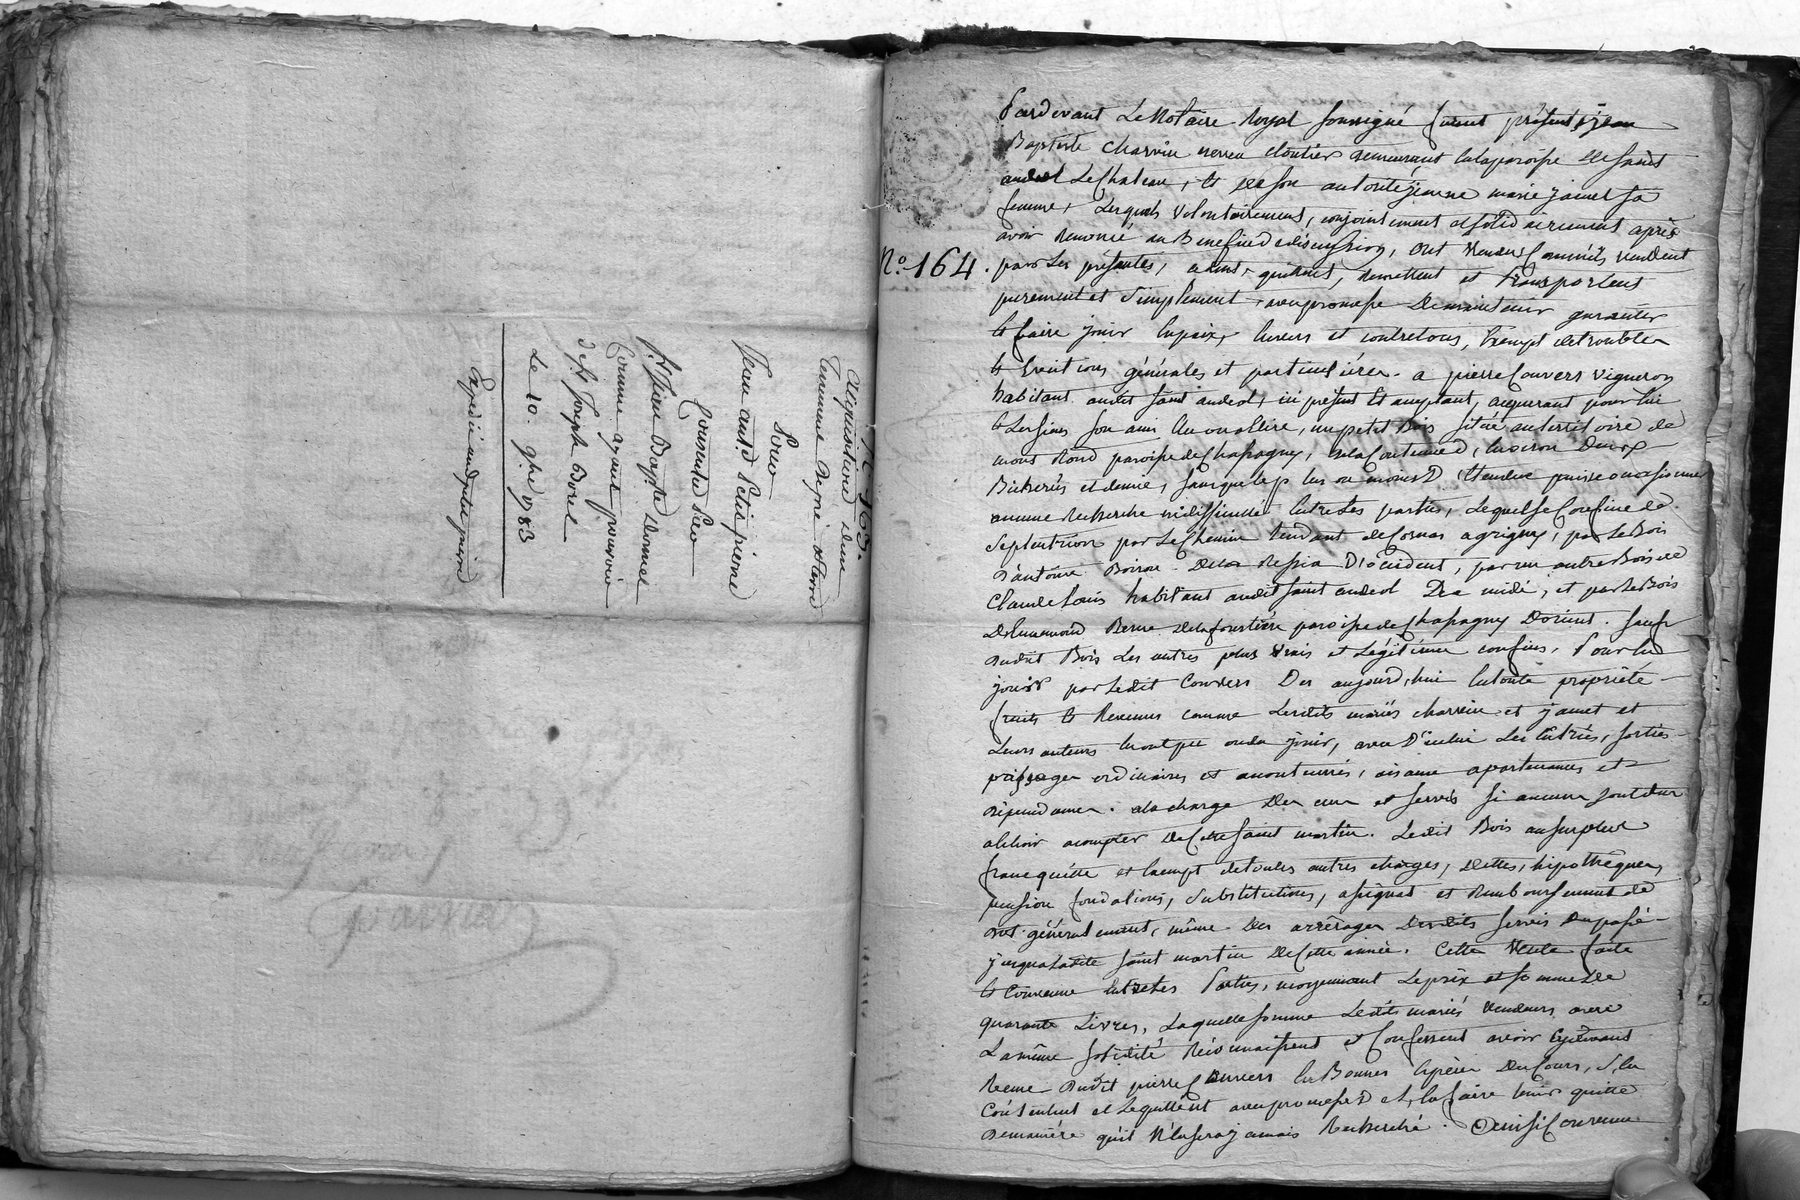 N.o 163.
acquisition d'un
Tennement de pré et terre
Pour
Jean and.d Petit pierre
Courvenu Par
S.r Jean Bap.te Dormel
comme ayant pouvoir
de S.r Joseph Borel
Le 10. 9bre 1783
Expédié audit petit pierre
N.o 164.
Pardevant Le Notaire Royal soussigné furent présents jean
Baptiste charvin neveu cloutier demeurant en la paroisse de saint
andéol Le Chateau, et de son autorité jeanne marie jamet sa
femme, Lesquels volontairement, conjointement et solidairement après
avoir renoncé au Benefice de discussion, ont vendu comme ils vendent
par Les présentes, cedent, quittent, remettent et transportent
purement et simplement avec promesse de maintenir garantir
et faire jouir en paix, envers et contre tous, exempt de trouble
et Evictions générales et particulières. a pierre Couvers vigneron
habitant audit saint andeol, ici présent et acceptant, acquerant pour lui
et Les siens son ami élu ou à élire, un petit Bois situé au territoire de
mont Rond paroisse de Chassagny, de la Contenue d'environ Deux
Bicherées et demie, sans que le plus ou moins D'étendue puisse occasionner
aucune Recherche ni difficulté Entre Les parties, Lequel se Confine de
septentrion par Le Chemin tendant de Cornas a grigny, par Le Bois
d'antoine Boiron De la Ressia D'occident, par un autre Bois de
Claude Louis habitant audit saint andeol De midi, et par Le Bois
De Ennemond Berne De la foretière paroisse de Chassagny D'orient. Sauf
dudit Bois Les autres plus vrais et Légitimes confins, Pour en
jouir par Ledit Couvers Des aujourd'hui en toute propriété
fruits et Revenus comme Lesdits mariés charvin et jamet et
Leurs auteurs en ont pu ou du jouir, avec D'icelui Les Entrées, sorties
passages ordinaires et accoutumés, aisance apartenances et
dépendances. a la charge Des cens et servis si aucuns sont dus
a l'avenir a compter de Cette saint martin. Ledit Bois au surplus
franc quitte et Exempt de toutes autres charges, dettes, hipothèques,
pension fondations, Substitutions, assignat et Remboursement de
dot généralement, même Des arrérages Desdits servis Du passé
jusqu'a Ladite saint martin de Cette année. Cette Vente faite
et Convenue Entre Les Parties, moyennant Le prix et somme de
quarante Livres, Laquelle somme Lesdits mariés vendeurs avec
La même solidité Reconnaissent et Confessent avoir Ci devant
Recue dudit pierre Couvers En Bonnes Espèces Du Cours, S'en
Contentent et Le quittent avec promesse D'en faire tenir quitte
de manière qu'il N'En sera jamais Recherché. Ainsi Convenu